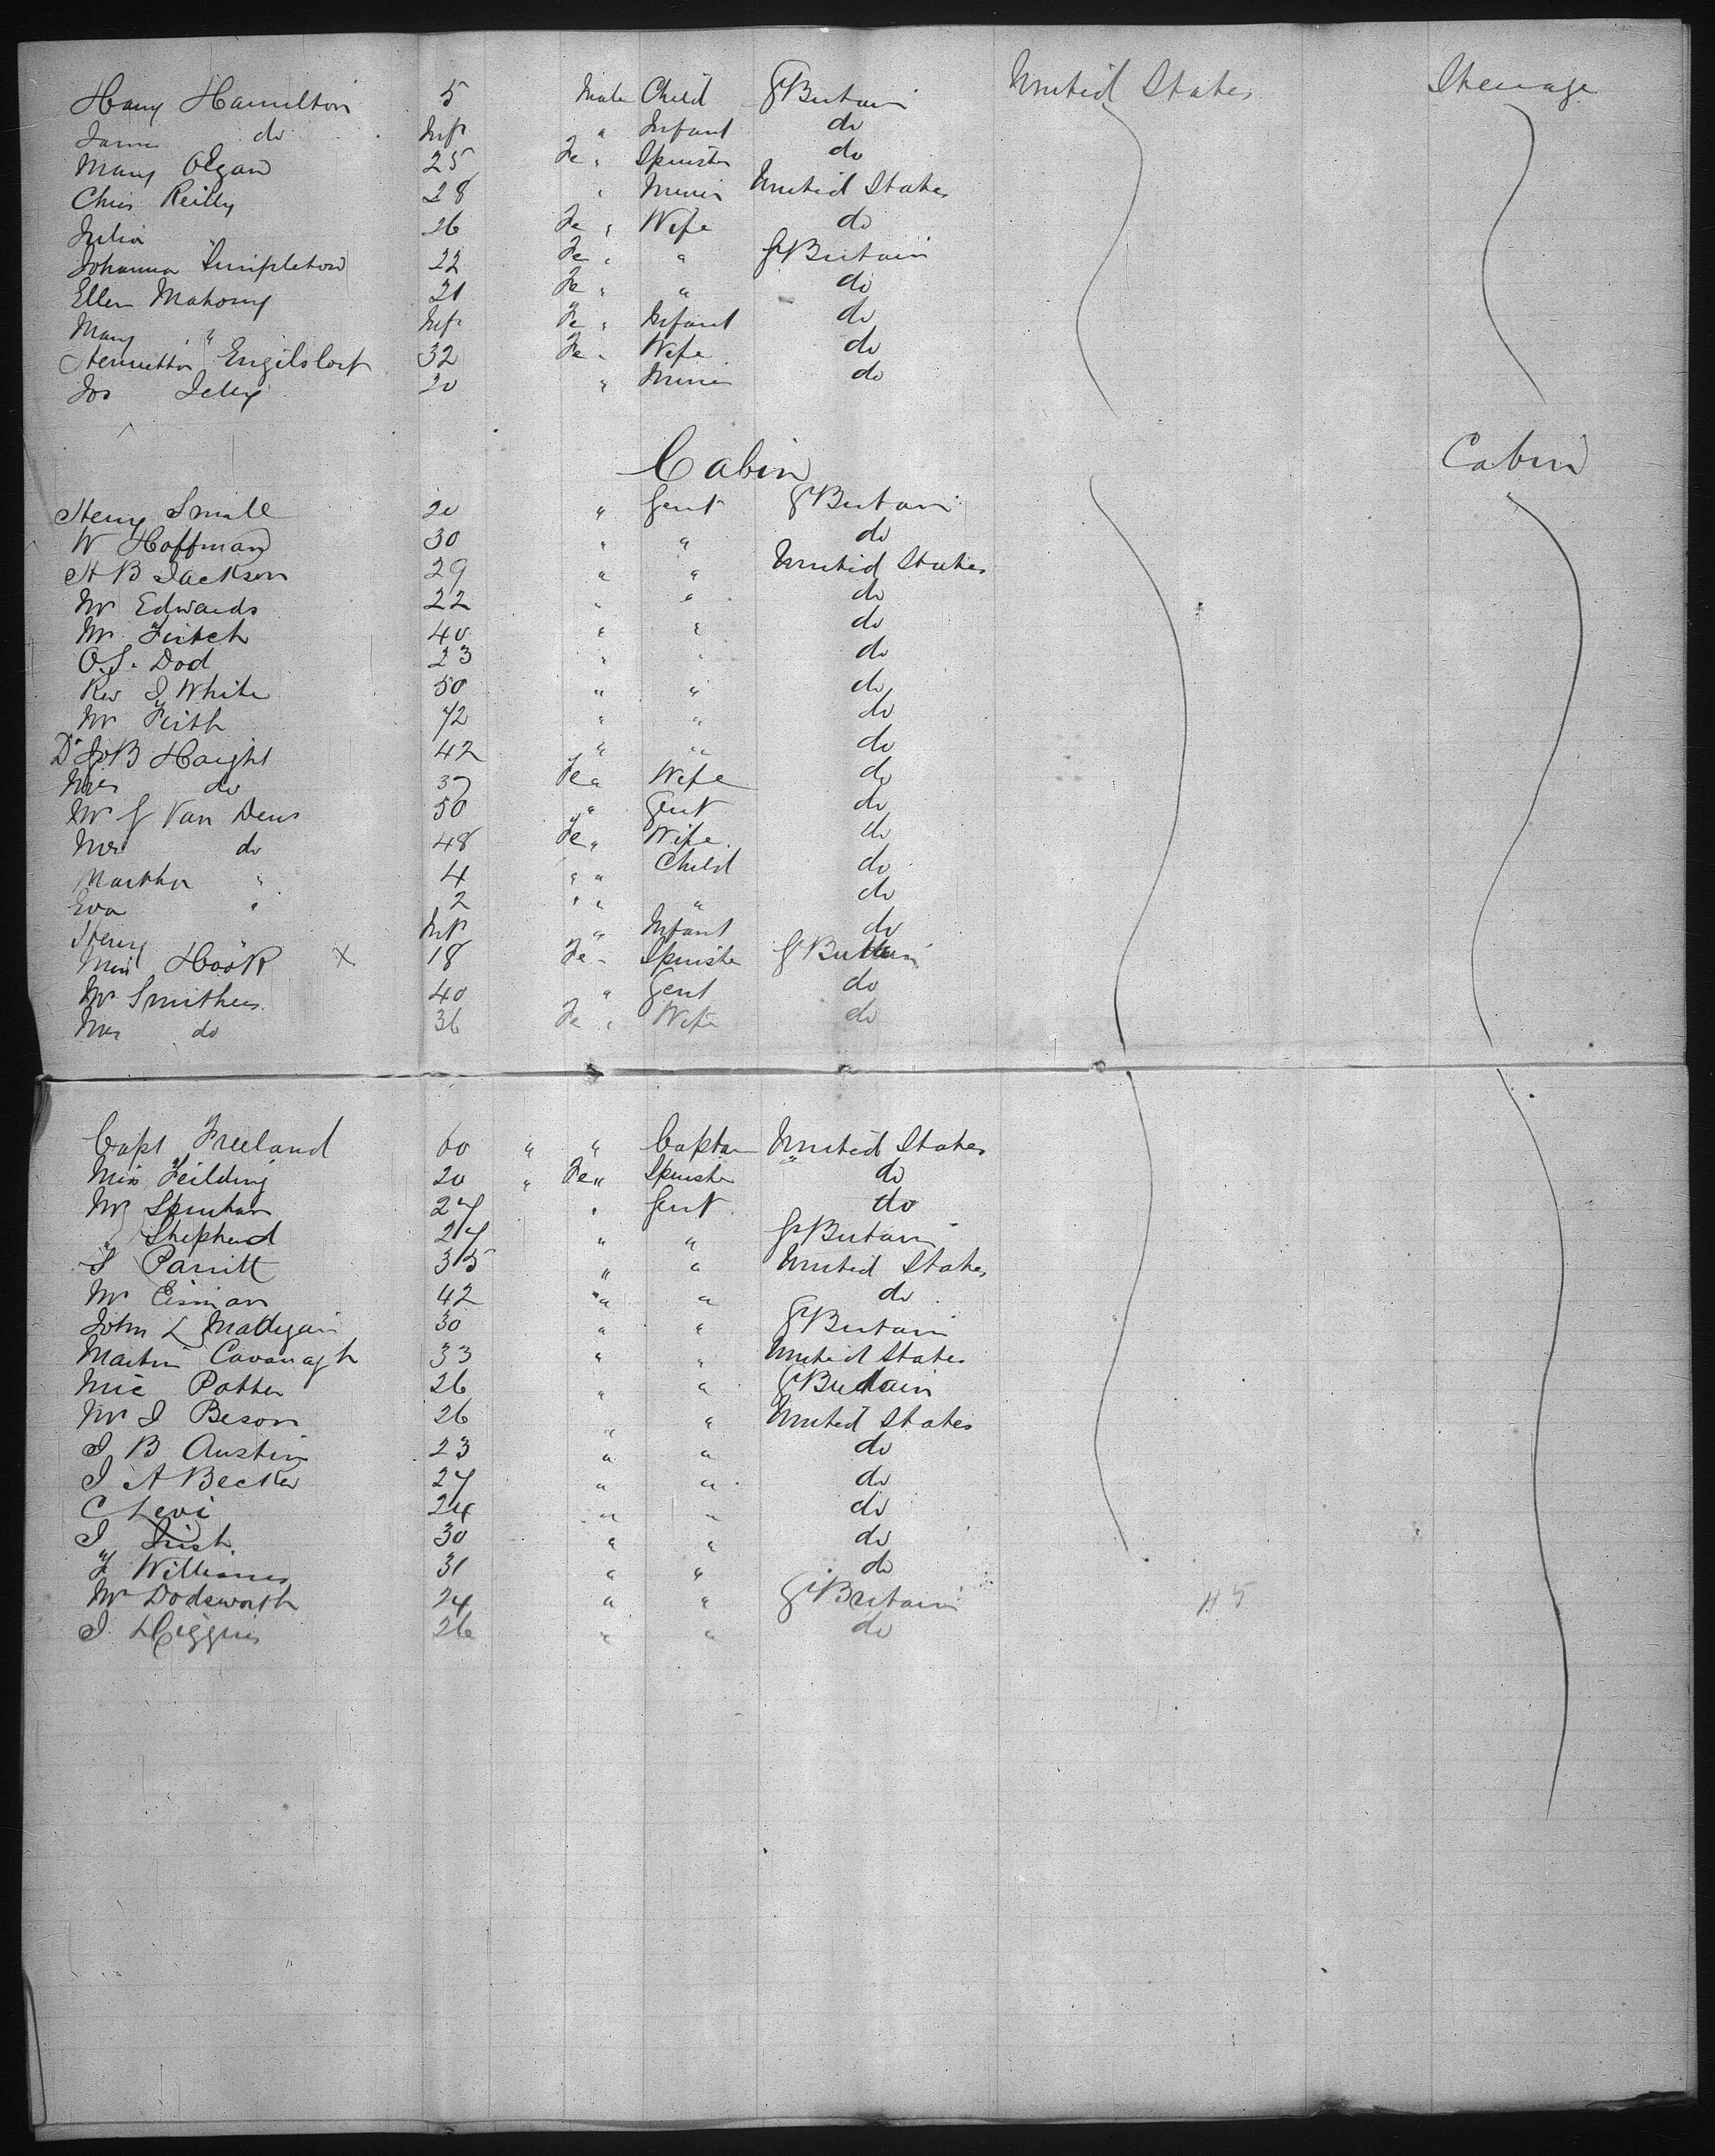 Harry Hamilton 5 Male Child G Britain United States Steerage
James do Inft " Infant do
Mary Olgan 25 Fe " Spinster do
Chris Reilly 28 " Miner United States
Julia " 26 Fe " Wife do
Johanna Simpleton 22 Fe " " G Britain
Ellen Mahony 21 Fe " " do
Mary " Inft Fe " Infant do
Henrietta Engilslorf 32 Fe " Wife do
Jos 20 " Miner do
Cabin Cabin
Henry Smale 20 " Gent G Britain
W Hoffman 30 " " do
H B Jackson 29 " " United States
Mr Edwards 22 " " do
Mr Fritch 40 " " do
O.S. Dod 23 " " do
Rev J White 50 " " do
Mr Firth 42 " " do
Dr J B Haight 42 " " do
Mrs do 37 Fe " Wife do
Mr G Van Deus 50 " Gent do
Mrs do 48 Fe " Wife do
Martha " 4 " " Child do
Eva " 2 " " " do
Henry " Inft " Infant do
Miss Hook X 18 Fe " Spinster G Britain
Mr Smithers 40 " Gent do
Mrs do 36 Fe " Wife do
Capt Freeland 60 " " Captain United States
Miss Feilding 20 " Fe " Spinster do
Mr 27 " Gent do
" Shepherd 27 " " G Britain
S Parritt 35 " " United States
Mr Eisman 42 " " do
John L Madigan 30 " " G Britain
Martin Cavanagh 33 " " United States
Mic Potter 26 " " G Britain
Mr J Beson 26 " " United States
J B Austin 23 " " do
J A Becker 27 " " do
C Levi 24 " " do
J Irish 30 " " do
F Williams 31 " " do
Mr Dodsworth 24 " " G Britain 45
J Higgins 26 " " do